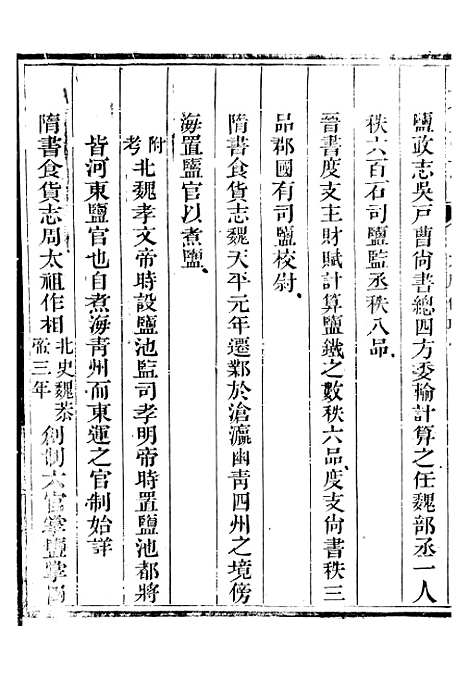 鹽政志吳戸曹尚書總四方委輸計算之任魏部丞一人
秩六百石司鹽監丞秩八品
晉書度支主財賦計算鹽鐵之數秩六品度支尚書秩三
品郡國有司鹽校尉
隋書食貨志魏天平元年遷鄴於滄瀛幽青四州之境傍
海置鹽官以煮鹽
附考北魏孝文帝時設鹽池監司孝明帝時置鹽池都將
皆河東鹽官也自煮海青州而東運之官制始詳
隋書食貨志周太祖作相北史魏恭帝三年創制六官掌鹽掌